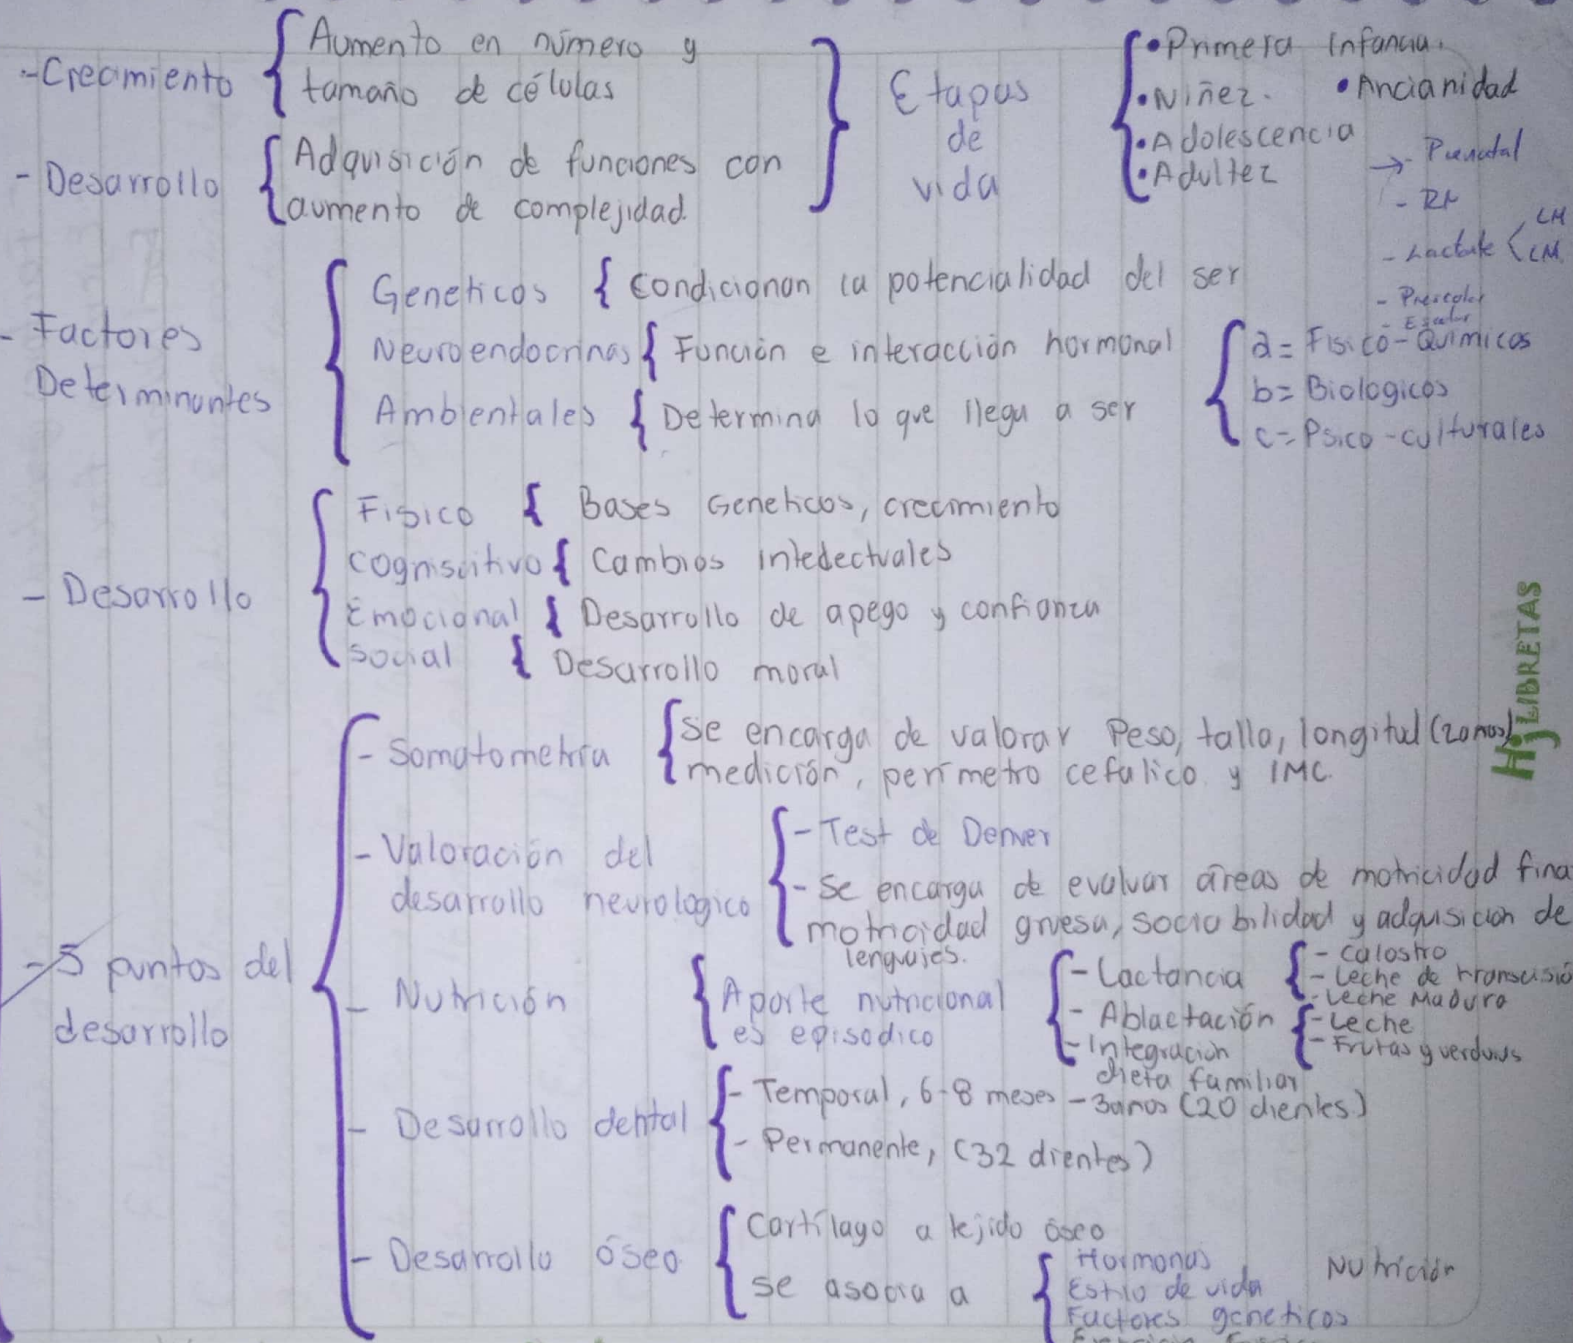 - Crecimiento
Aumento en número y
tamaño de células
- Desarrollo
Adquisición de funciones con
aumento de complejidad.
Etapas
de
vida
• Primera Infancia.
• Niñez.
• Ancianidad
• Adolescencia
• Adultez
→ - Prenatal
- RN
- Lactate < LM
LM
- Prescolar
- Escolar
- Factores
Determinantes
Geneticos { Condicionan la potencialidad del ser
Neuroendocrinas { Función e interacción hormonal
Ambientales { Determina lo que llega a ser
a = Fisico-Químicos
b = Biologicos
c = Psico-culturales
- Desarrollo
Fisico { Bases Geneticos, crecimiento
Cogniscitivo { Cambios intedectuales
Emocional { Desarrollo de apego y confianza
Social { Desarrollo moral
- 5 puntos del
desarrollo
- Somatometria
se encarga de valorar Peso, talla, longitud (2 años)
medición, perímetro cefalico y IMC.
- Valoración del
desarrollo neurologico
- Test de Denver
- Se encarga de evaluar áreas de motricidad fina
motricidad gruesa, sociobilidad y adquisicion de
lenguajes.
- Nutrición
Aporte nutricional
es episodico
- Lactancia
- Calostro
- Leche de transcisió
- Leche Madura
- Ablactación
- Leche
- Frutas y verduras
- Integración
dieta familiar
- Desarrollo dental
- Temporal, 6-8 meses - 3 años (20 dientes)
- Permanente, (32 dientes)
- Desarrollo óseo
Cartílago a tejido óseo
se asocia a
Hormonas
Estilo de vida
Factores geneticos
Nutrición
Hoj LIBRETAS